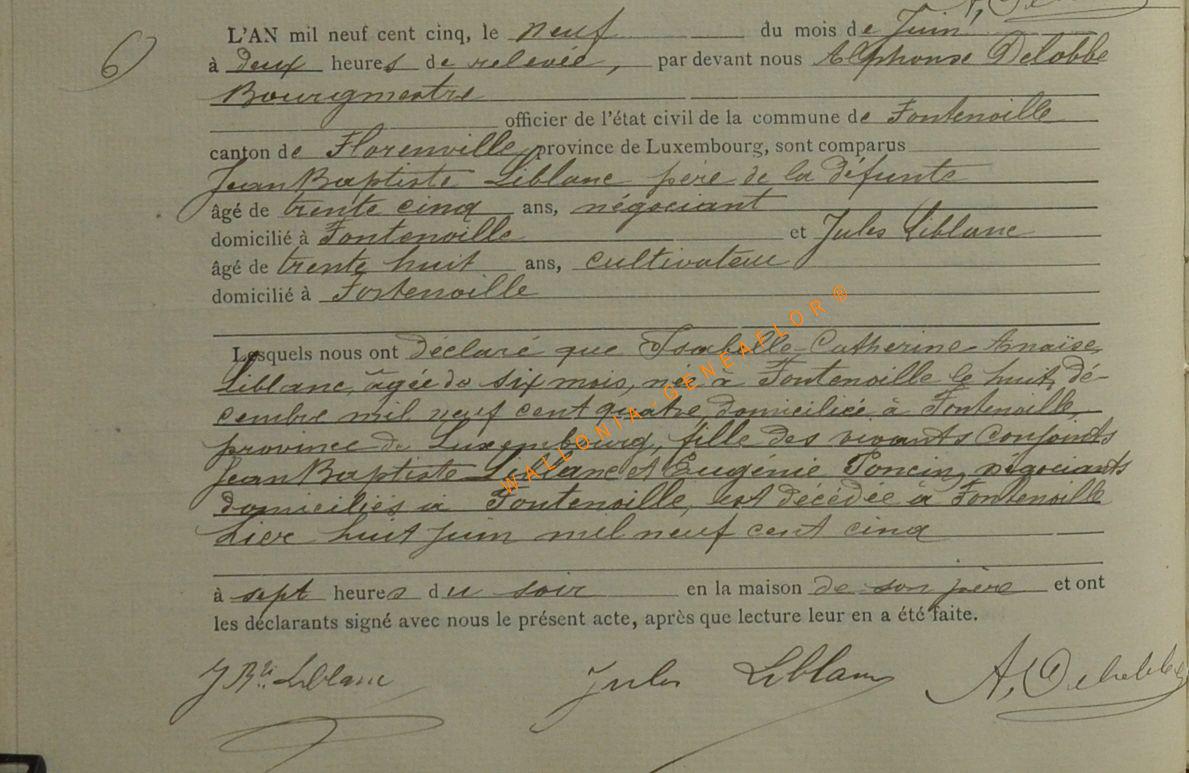 6
L'AN mil neuf cent cinq, le neuf du mois de Juin
à deux heures de relevée, par devant nous Alphonse Delobbe
Bourgmestre
officier de l'état civil de la commune de Fontenoille
canton de Florenville province de Luxembourg, sont comparus
Jean Baptiste Leblanc père de la défunte
âgé de trente cinq ans, négociant
domicilié à Fontenoille et Jules Leblanc
âgé de trente huit ans, cultivateur
domicilié à Fontenoille
Lesquels nous ont déclaré que Isabelle Catherine Anaïse
Leblanc, âgée de six mois, née à Fontenoille le huit dé-
cembre mil neuf cent quatre, domiciliée à Fontenoille,
province de Luxembourg, fille des vivants conjoints
Jean Baptiste Leblanc et Eugénie Poncin, négociants
domiciliés à Fontenoille, est décédée à Fontenoille
hier huit Juin mil neuf cent cinq
à sept heures du soir en la maison de son père et ont
les déclarants signé avec nous le présent acte, après que lecture leur en a été faite.
J Bte Leblanc Jules Leblanc A. Delobbe
WALLONIA-GENEAFLOR®